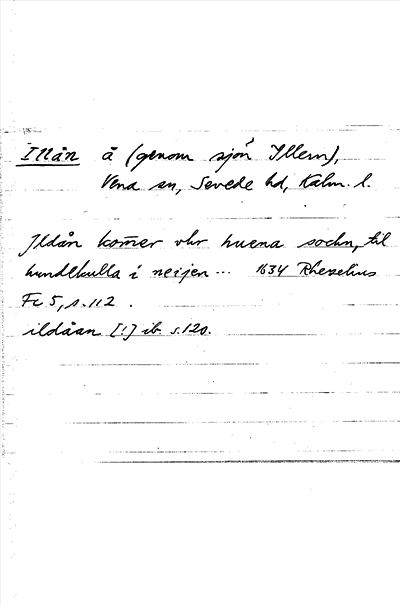 Illån å (genom sjön Yllern),
Vena sn, Sevede hd, Kalm. l.
Jldån kom̄er vhr huena sochn, til
hundlkulla i neijen... 1634 Rhezelius
Fc 5, s. 112.
ildåan [!] ib s. 120.